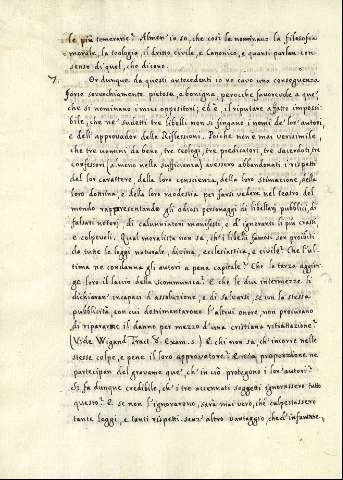 le più temerarie? Almen' io so, che così le nominano la filosofia
morale, la teologia, il dritto civile, e canonico, e quanti parlan con
senso di quel, che dicono.
7. Or dunque da questi antecedenti io ne cavo una conseguenza
forse soverchiamente pietosa, e benigna, perocchè favorevole a que',
che si nominano i miei oppositori; ed è, il riputare affatto impossi-
bile, che ne' suietti tre libelli non si fingano i nomi de' lor' autori,
e dell' approvador delle Riflessioni. Poichè non è mai verisimile,
che tre uomini da bene, tre teologi, tre predicatori, tre sacerdoti, tre
confessori (almeno nella sufficienza) avessero abbandonati i rispetti
del lor carattere, della loro conscienza, della loro stimazione, della
loro dottrina, e della loro modestia per farsi vedere nel teatro del
mondo rappresentando gli odiosi personaggi di libellai pubblici, di
falsari notorj, di calunniatori manifesti, e d'ignoranti li più crassi,
e colpevoli. Qual moralista non sa, ch' i libelli famosi son proibiti
da tutte le leggi naturale, divina, ecclesiastica, e civile? Che l'ul-
tima ne condanna gli autori a pena capitale? Che la terza aggiun-
ge loro il laccio della scomunica? E che le due intermezze si
dichiaran' incapaci d'assoluzione, e di salvarsi, se con la stessa
pubblicità, con cui detrimentarono l'altrui onore, non procurano
di ripararne il danno per mezzo d'una cristiana ritrattazione?
(Vide Wigand Tract. 8. Exam. 5.) E chi non sa, ch' incorre nelle
stesse colpe, e pene il loro approvatore? E con proporzione ne
partecipan del gravame que', ch' in ciò protegono i lor' autori?
Or, fa dunque credibile, ch' i tre accennati soggetti ignorassero tutto
questo? E se non l'ignorarono, sarà mai vero, che calpestassero
tante leggi, e tanti rispetti, senz' altro vantaggio, che d'infamare